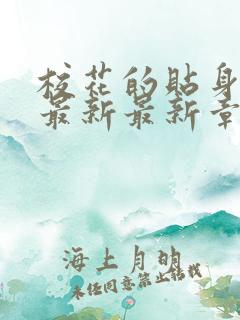 校花的贴身
最新最新章
海上月明
未经同意禁止转载